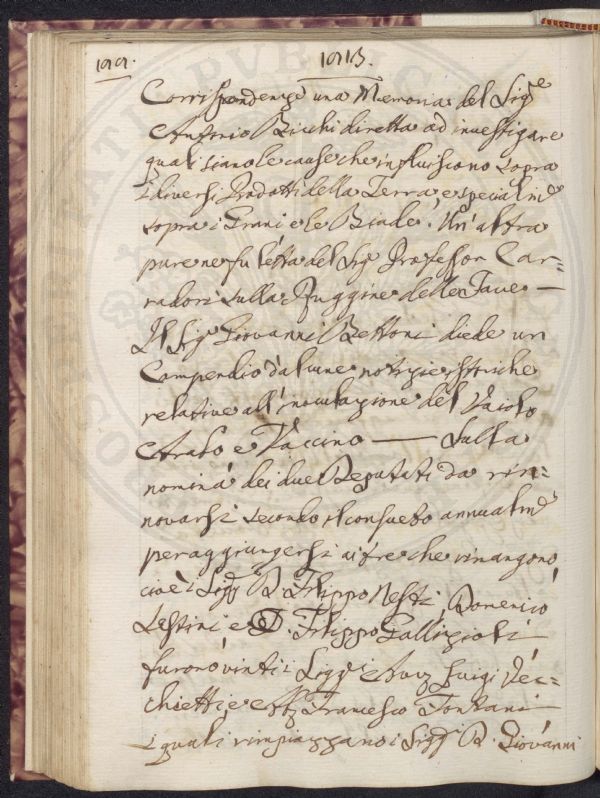 199. 1813.
Corrispondenze una Memoria del Sig.e
Antonio Bicchi diretta ad investigare
quali siano le cause che influiscono sopra
i diversi Prodotti della Terra, e specialm.e
sopra i Grani e le Biade. Un' altra
pure ne fu letta del Sig. Professor Car=
radori sulla Ruggine delle Fave —
Il Sig. Giovanni Bettoni diede un
Compendio d'alcune notizie istoriche
relative all' inoculazione del Vaiolo
Arabo e Vaccino — Sulla
nomina dei due Deputati da rin=
novarsi secondo il consueto annualm.e
per aggiungersi ai tre che rimangono
cioè i Sigg. D. Filippo Nesti, Domenico
Lestini, e D. Filippo Gallizioli
furono vinti i Sigg.i Avv. Luigi Vec=
chietti, e Francesco Fontani
i quali rimpiazzano i Sigg. D. Giovanni